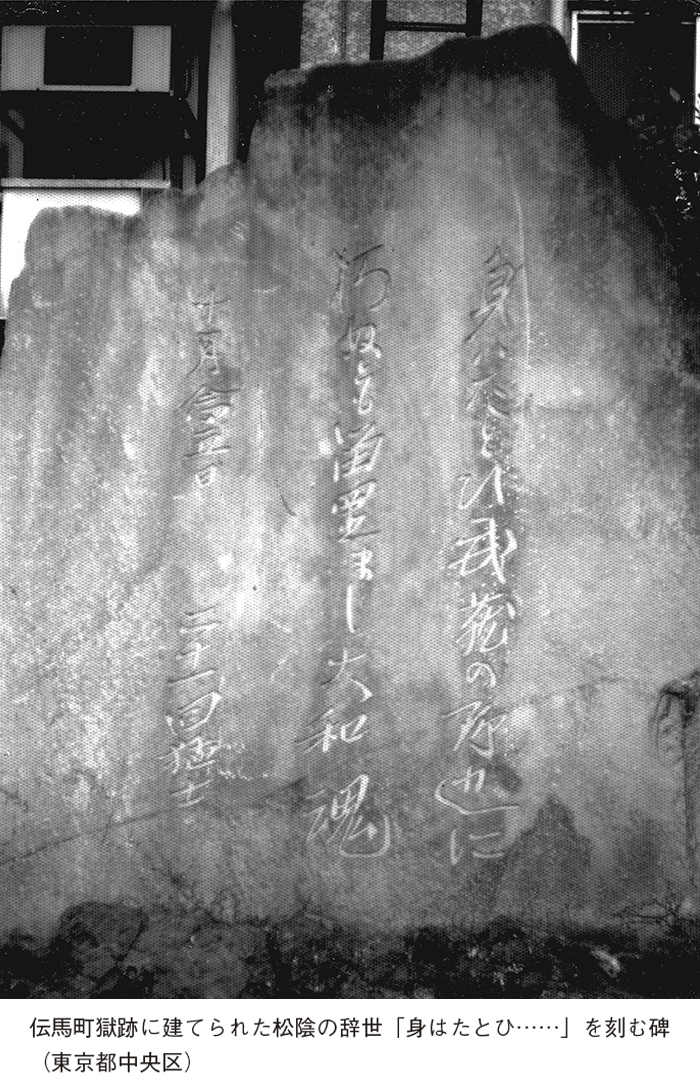 身ハたとひ武蔵の野辺に
朽ぬとも留置まし大和魂
十月念五日 二十一回猛士
伝馬町獄跡に建てられた松陰の辞世「身はたとひ……」を刻む碑
（東京都中央区）